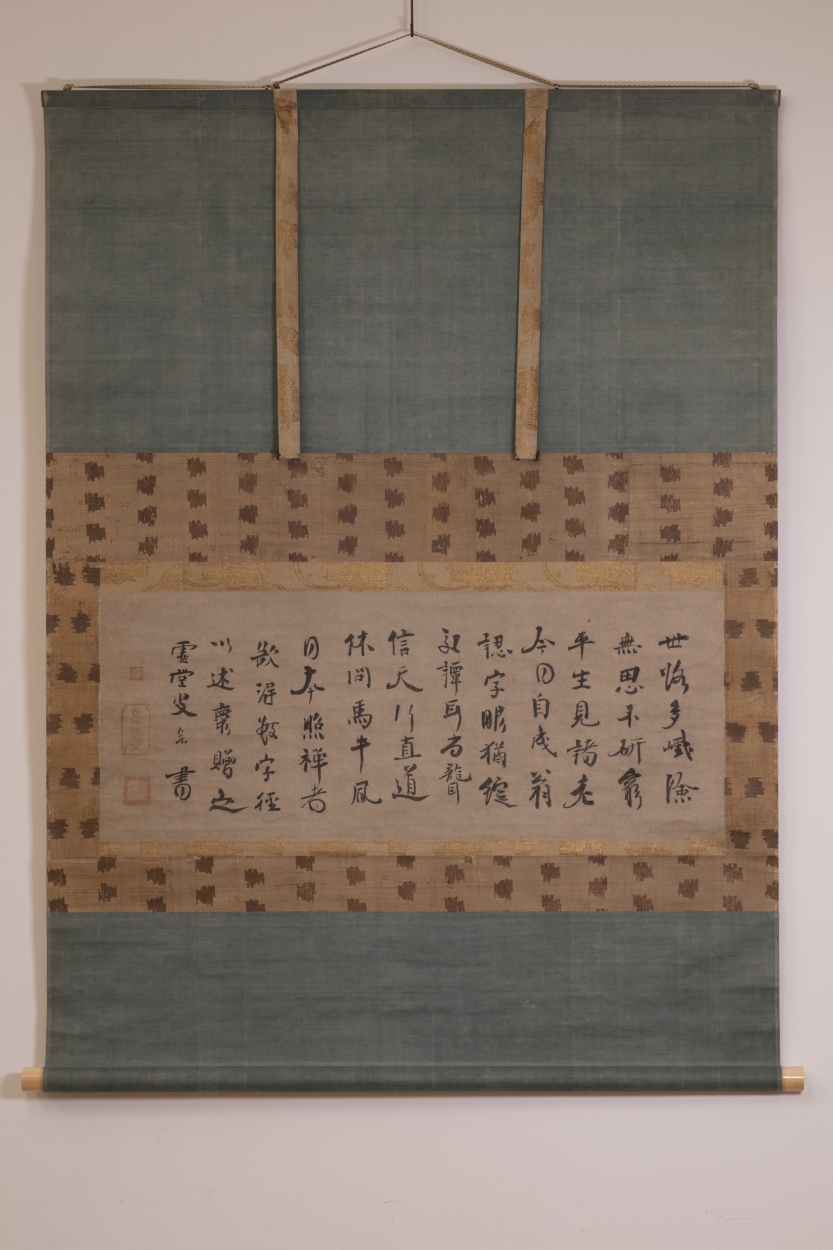 世路多巇險
無思不研窮
平生見諸老
今日自成翁
認字眼猶綻
交譚耳尚聾
信天行直道
休問馬牛風
日本照禪者
欲得數字徑
以述懷贈之
虛堂叟愚書